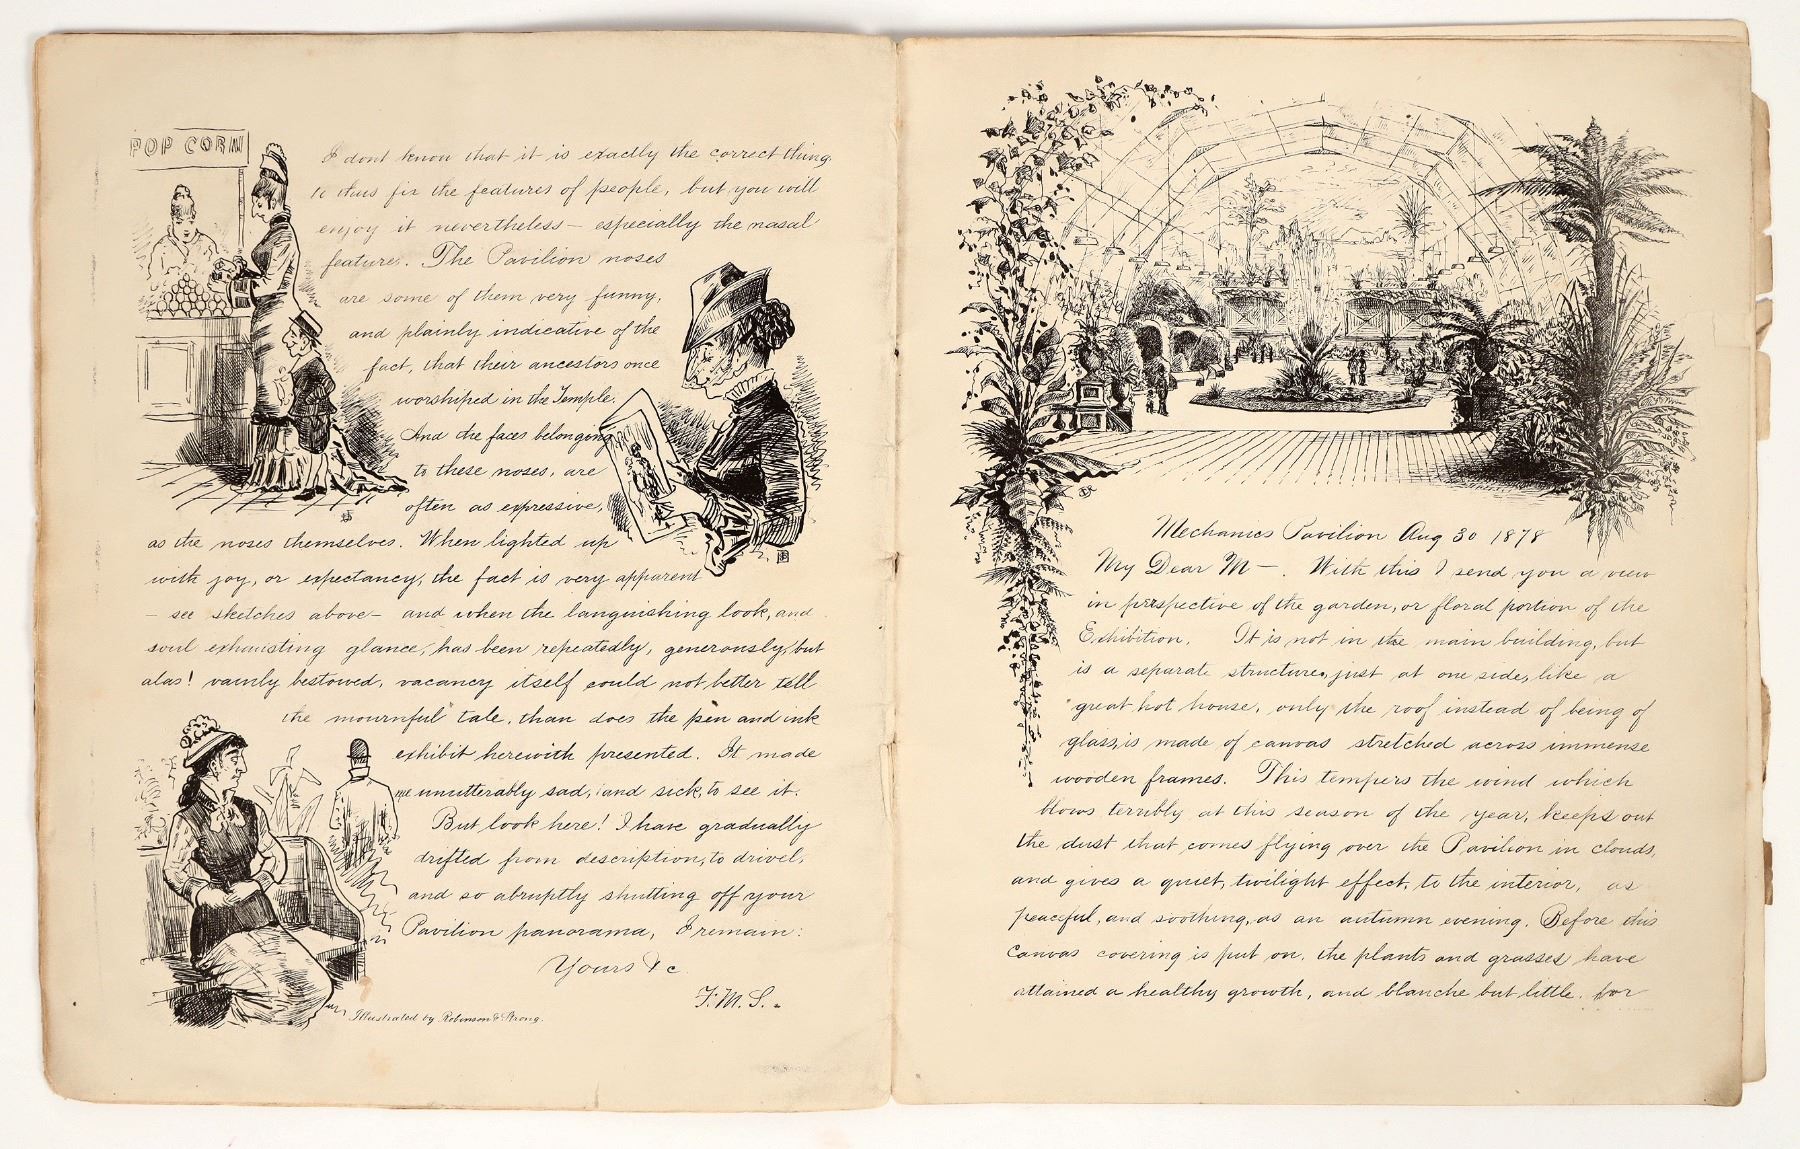 POP CORN
I dont know that it is exactly the correct thing
to thus fix the features of people, but you will
enjoy it nevertheless – especially the nasal
feature. The Pavilion noses
are some of them very funny,
and plainly indicative of the
fact, that their ancestors once
worshiped in the Temple.
And the faces belonging
to these noses, are
often as expressive,
as the noses themselves. When lighted up
with joy, or expectancy, the fact is very apparent
– see sketches above – and when the languishing look, and
soul exhausting glance, has been repeatedly, generously, but
alas! vainly bestowed, vacancy itself could not better tell
the mournful tale, than does the pen and ink
exhibit herewith presented. It made
me unutterably sad, and sick, to see it.
But look here! I have gradually
drifted from description, to drivel,
and so abruptly shutting off your
Pavilion panorama, I remain:
Yours &c
F.M.S.
Illustrated by Robinson & Strong.
Mechanics Pavilion Aug 30 1878
My Dear M—. With this I send you a view
in perspective of the garden, or floral portion of the
Exhibition. It is not in the main building, but
is a separate structure, just at one side, like a
great hot house, only the roof instead of being of
glass, is made of canvas stretched across immense
wooden frames. This tempers the wind which
blows terribly at this season of the year, keeps out
the dust that comes flying over the Pavilion in clouds,
and gives a quiet, twilight effect, to the interior, as
peaceful, and soothing, as an autumn evening. Before this
Canvas covering is put on, the plants and grasses have
attained a healthy growth, and blanche but little, for